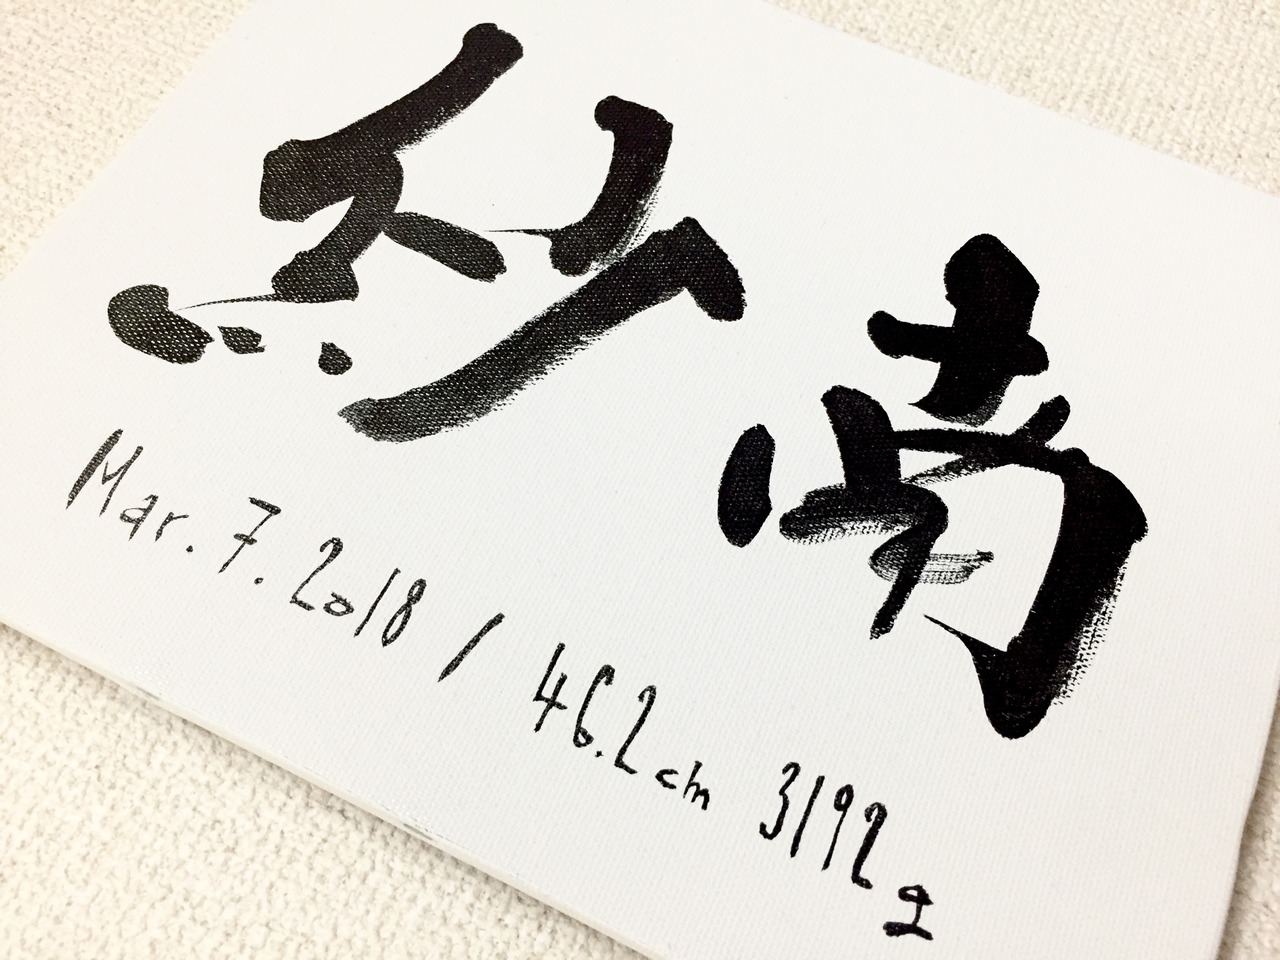 紗南
Mar. 7. 2018 / 46.2cm 3192g